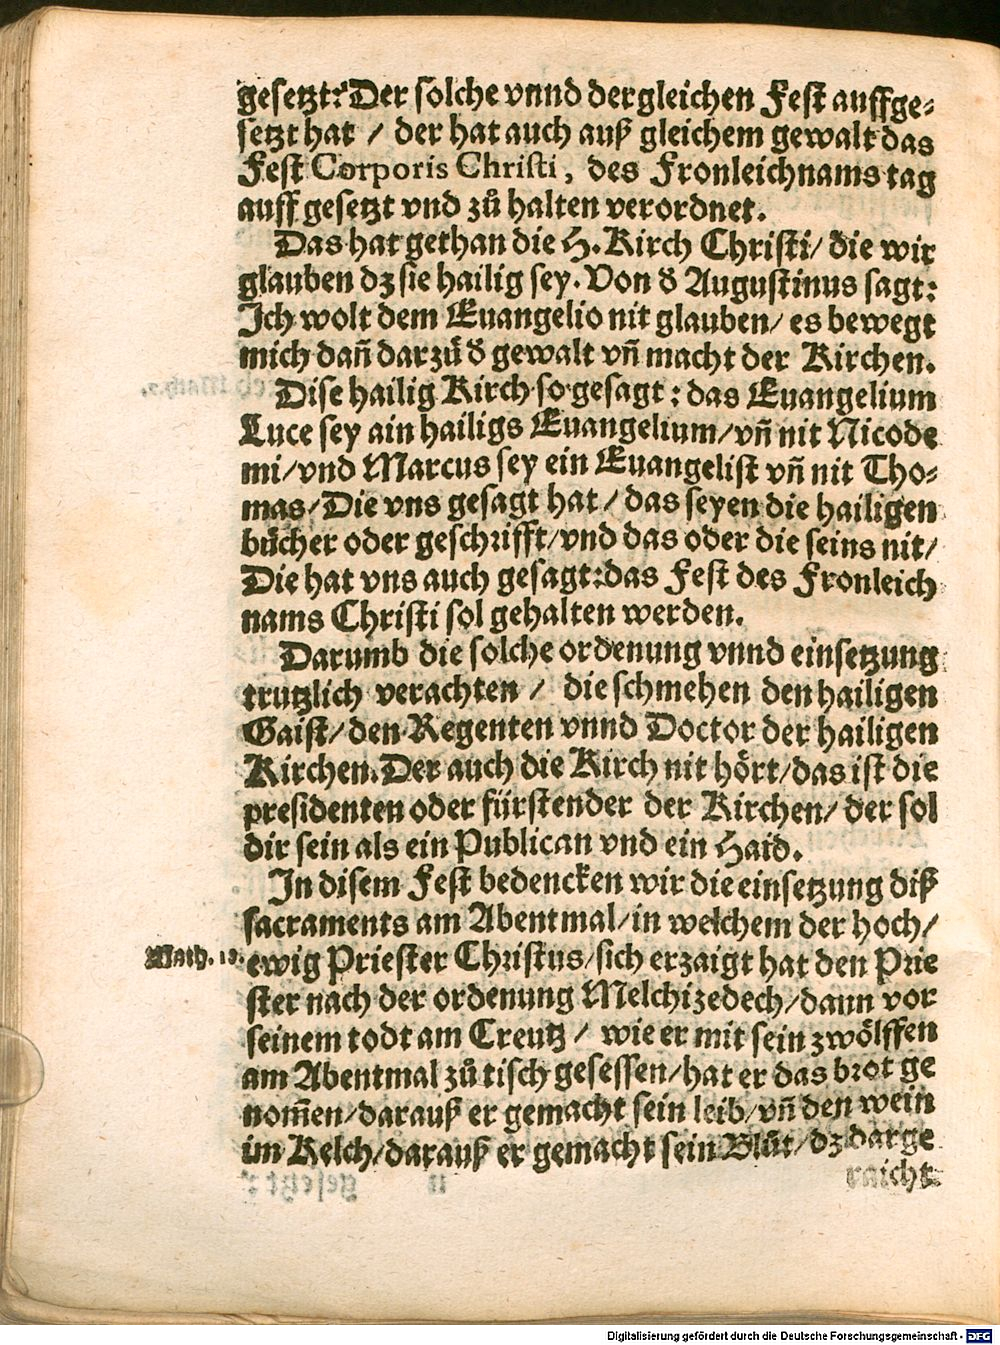 gesetzt? Der solche vnnd dergleichen Fest auffge⸗
setzt hat / der hat auch auß gleichem gewalt das
Fest Corporis Christi, des Fronleichnams tag
auff gesetzt vnd zů halten verordnet.
Das hat gethan die H. Kirch Christi/ die wir
glauben dz sie hailig sey. Von d̕ Augustinus sagt:
Ich wolt dem Euangelio nit glauben/ es bewegt
mich dañ darzů d̕ gewalt vñ macht der Kirchen.
Dise hailig Kirch so gesagt: das Euangelium
Luce sey ain hailigs Euangelium/vñ nit Nicode
mi/vnd Marcus sey ein Euangelist vñ nit Tho⸗
mas/Die vns gesagt hat/ das seyen die hailigen
bücher oder geschrifft/vnd das oder die seins nit/
Die hat vns auch gesagt:das Fest des Fronleich
nams Christi sol gehalten werden.
Darumb die solche ordenung vnnd einsetzung
trutzlich verachten / die schmehen den hailigen
Gaist/ den Regenten vnnd Doctor der hailigen
Kirchen. Der auch die Kirch nit hört/das ist die
presidenten oder fürstender der Kirchen/ der sol
dir sein als ein Publican vnd ein Haid.
In disem Fest bedencken wir die einsetzung diß
sacraments am Abentmal/in welchem der hoch/
Math. 18. ewig Priester Christus/sich erzaigt hat den Prie
ster nach der ordenung Melchizedech/dann vor
seinem todt am Creutz / wie er mit sein zwölffen
am Abentmal zů tisch gesessen/hat er das brot ge
nom̃en/darauß er gemacht sein leib/vñ den wein
im Kelch/darauß er gemacht sein Blůt/dz darge
raicht
Digitalisierung gefördert durch die Deutsche Forschungsgemeinschaft - DFG